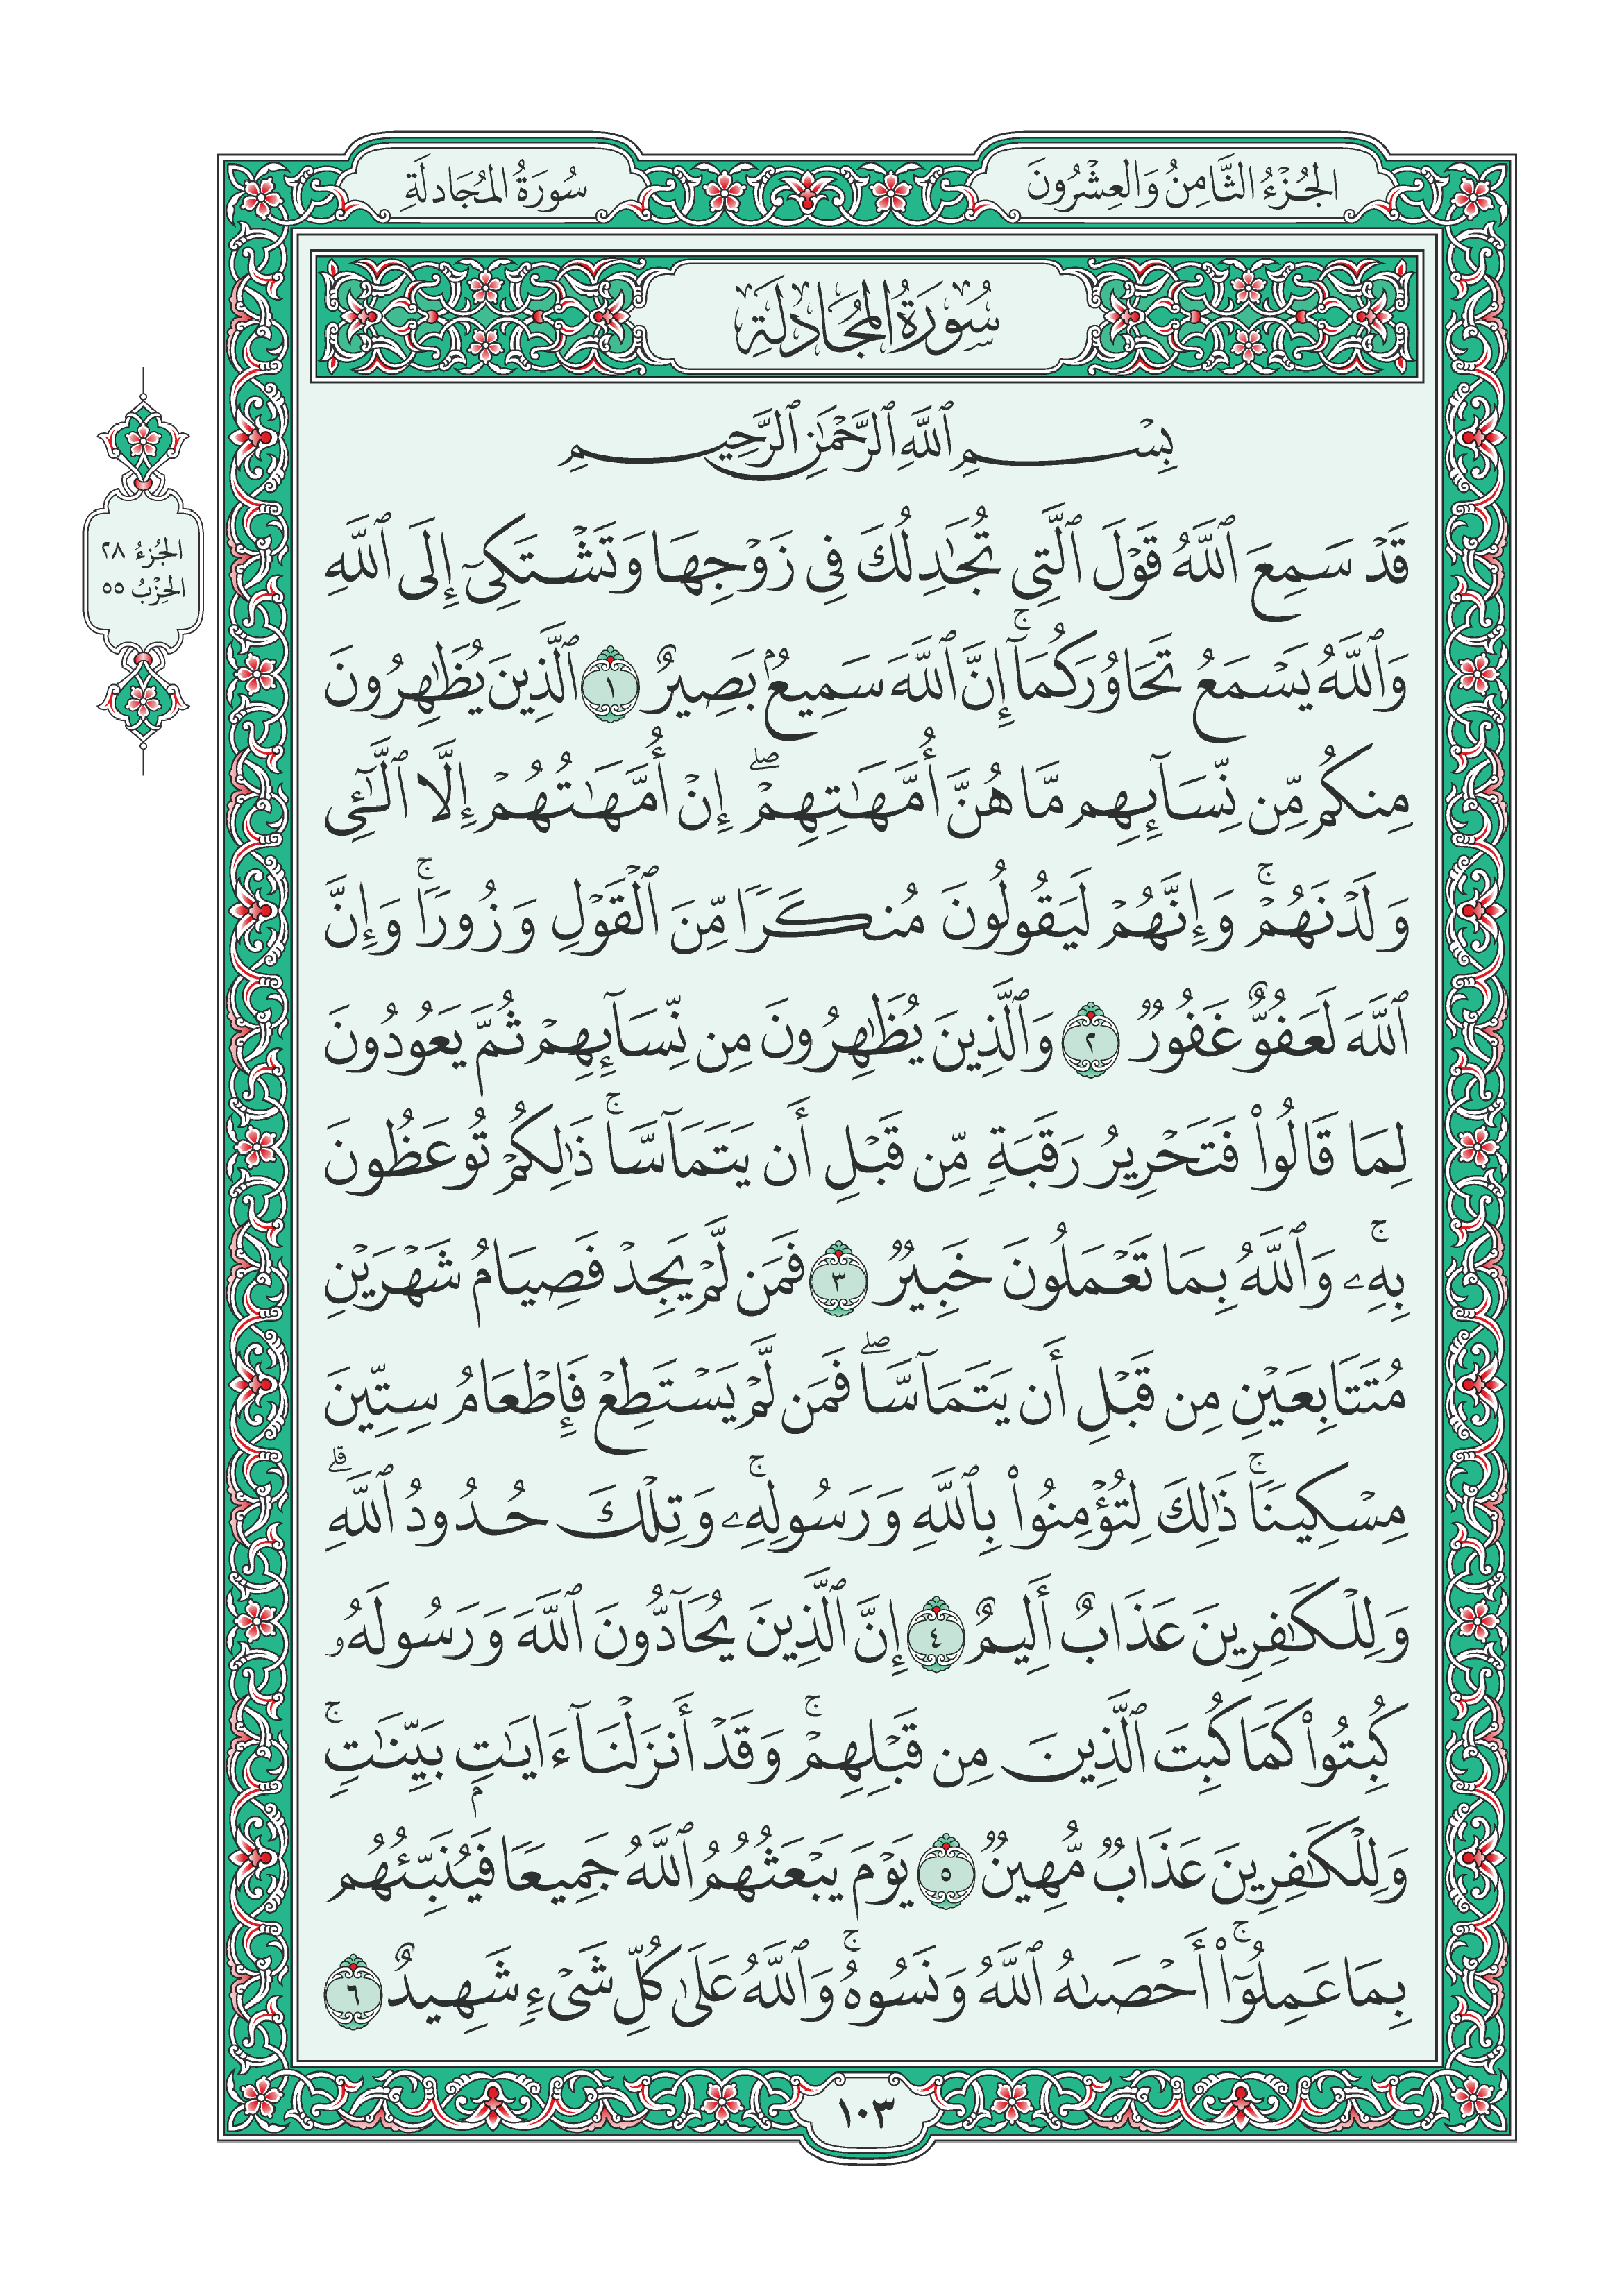 الجُزْءُ الثَّامِنُ وَالعِشْرُونَ
سُورَةُ المُجَادلَةِ
سُورَةُ المُجَادلَةِ
بِسْمِ ٱللَّهِ ٱلرَّحْمَٰنِ ٱلرَّحِيمِ
قَدْ سَمِعَ ٱللَّهُ قَوْلَ ٱلَّتِي تُجَٰدِلُكَ فِي زَوْجِهَا وَتَشْتَكِيٓ إِلَى ٱللَّهِ
وَٱللَّهُ يَسْمَعُ تَحَاوُرَكُمَآۚ إِنَّ ٱللَّهَ سَمِيعُۢ بَصِيرٌ ١ ٱلَّذِينَ يُظَٰهِرُونَ
مِنكُم مِّن نِّسَآئِهِم مَّا هُنَّ أُمَّهَٰتِهِمْۖ إِنْ أُمَّهَٰتُهُمْ إِلَّا ٱلَّٰٓـِٔي
وَلَدْنَهُمْۚ وَإِنَّهُمْ لَيَقُولُونَ مُنكَرًا مِّنَ ٱلْقَوْلِ وَزُورًاۚ وَإِنَّ
ٱللَّهَ لَعَفُوٌّ غَفُورٌ ٢ وَٱلَّذِينَ يُظَٰهِرُونَ مِن نِّسَآئِهِمْ ثُمَّ يَعُودُونَ
لِمَا قَالُوا۟ فَتَحْرِيرُ رَقَبَةٍ مِّن قَبْلِ أَن يَتَمَآسَّاۚ ذَٰلِكُمْ تُوعَظُونَ
بِهِۦۚ وَٱللَّهُ بِمَا تَعْمَلُونَ خَبِيرٌ ٣ فَمَن لَّمْ يَجِدْ فَصِيَامُ شَهْرَيْنِ
مُتَتَابِعَيْنِ مِن قَبْلِ أَن يَتَمَآسَّاۖ فَمَن لَّمْ يَسْتَطِعْ فَإِطْعَامُ سِتِّينَ
مِسْكِينًاۚ ذَٰلِكَ لِتُؤْمِنُوا۟ بِٱللَّهِ وَرَسُولِهِۦۚ وَتِلْكَ حُدُودُ ٱللَّهِۗ
وَلِلْكَٰفِرِينَ عَذَابٌ أَلِيمٌ ٤ إِنَّ ٱلَّذِينَ يُحَآدُّونَ ٱللَّهَ وَرَسُولَهُۥ
كُبِتُوا۟ كَمَا كُبِتَ ٱلَّذِينَ مِن قَبْلِهِمْۚ وَقَدْ أَنزَلْنَآ ءَايَٰتِۭ بَيِّنَٰتٍۚ
وَلِلْكَٰفِرِينَ عَذَابٌ مُّهِينٌ ٥ يَوْمَ يَبْعَثُهُمُ ٱللَّهُ جَمِيعًا فَيُنَبِّئُهُم
بِمَا عَمِلُوٓا۟ۚ أَحْصَىٰهُ ٱللَّهُ وَنَسُوهُۚ وَٱللَّهُ عَلَىٰ كُلِّ شَيْءٍ شَهِيدٌ ٦
الجُزءُ ٢٨
الحِزْبُ ٥٥
١٠٣